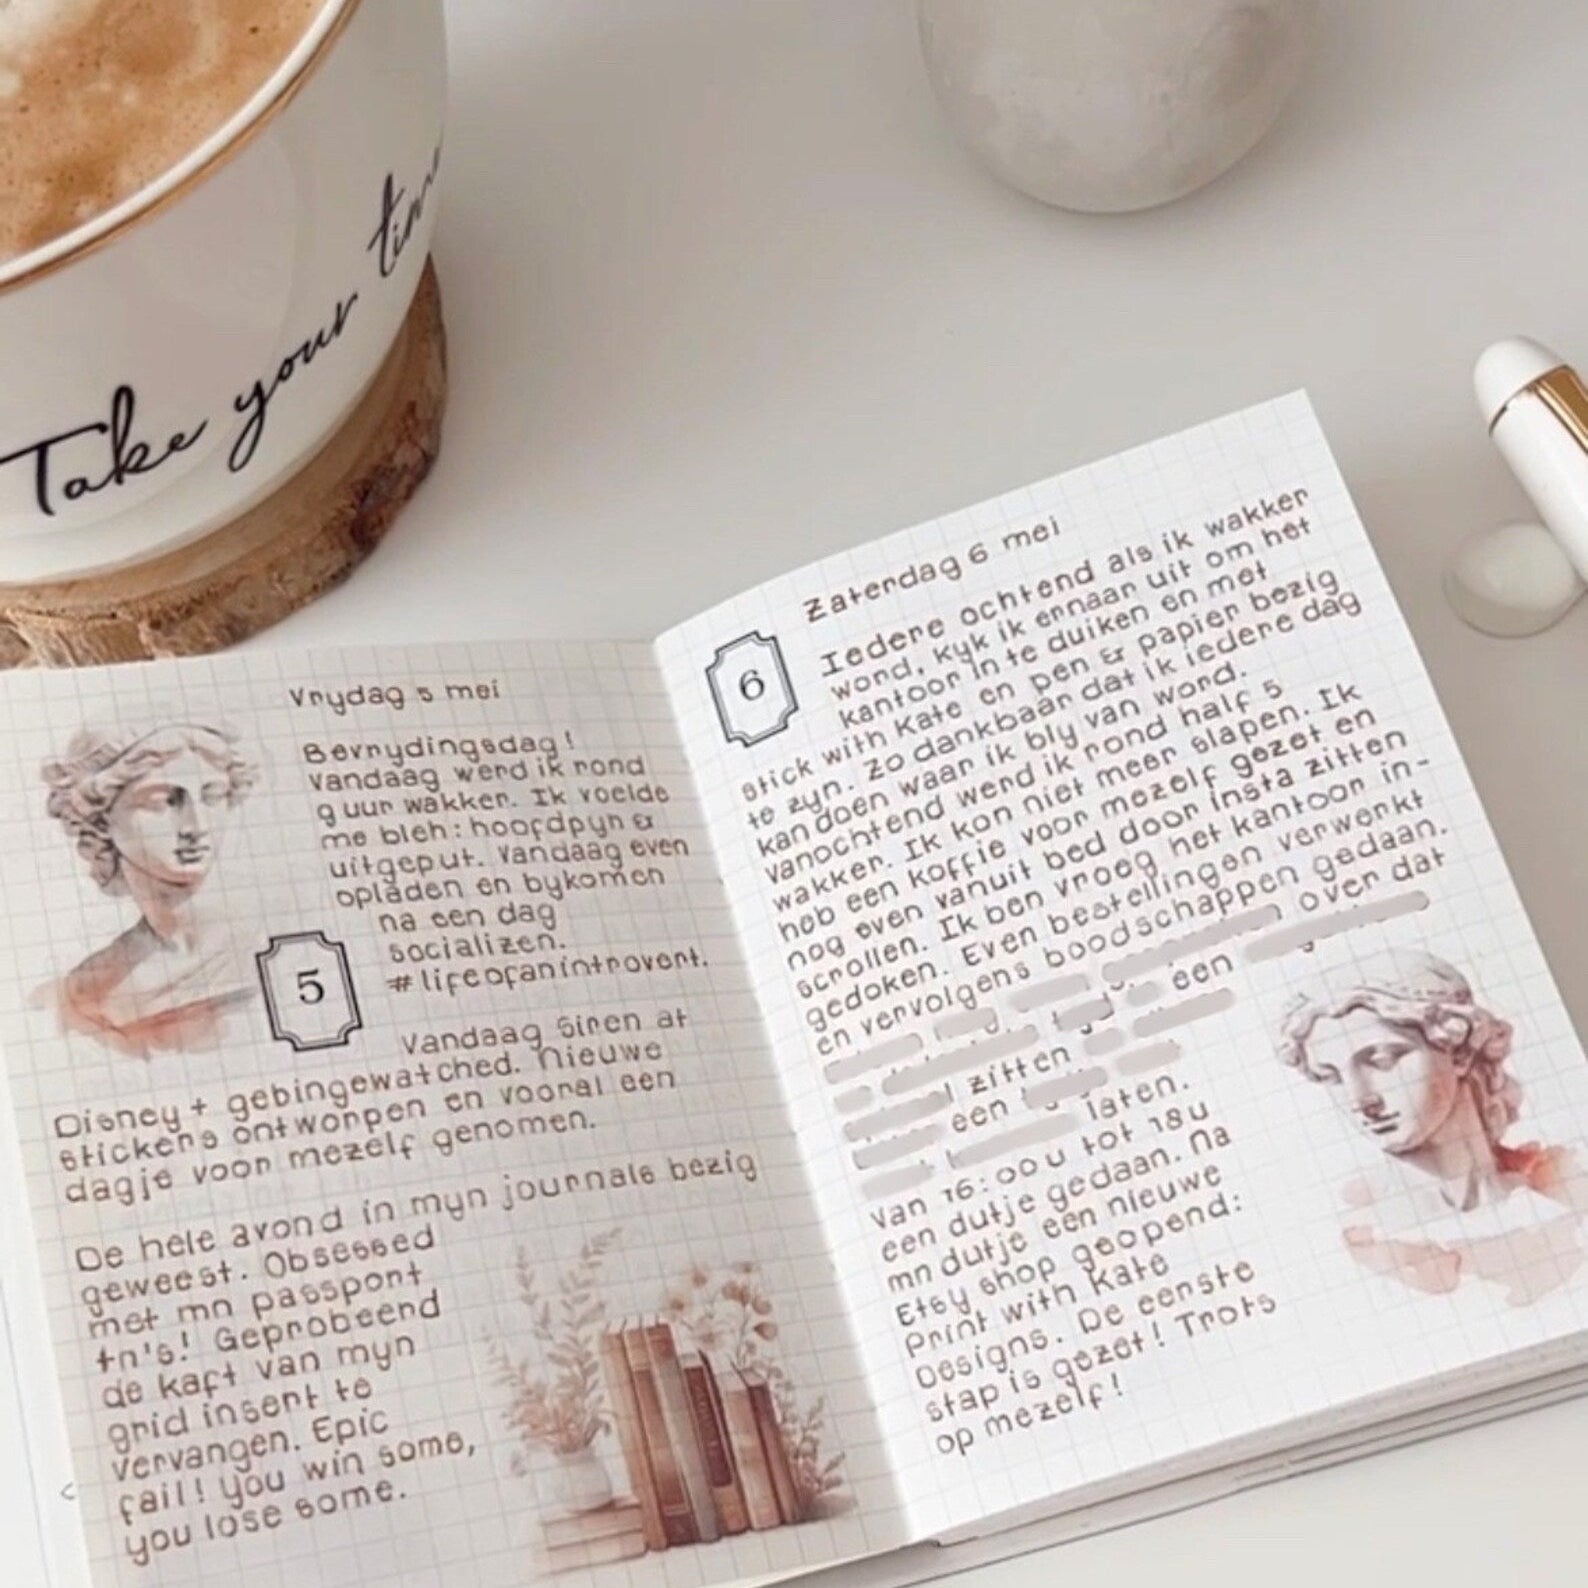 Take your time
Vrydag 5 mei
Bevrydingsdag!
Vandaag werd ik rond
9 uur wakker. Ik voelde
me bleh: hoofdpyn &
uitgeput. Vandaag even
opladen en bykomen
na een dag
socializen.
#lifeofanintrovert.
5
Vandaag Siren at
Disney+ gebingewatched. Nieuwe
stickers ontworpen en vooral een
dagje voor mezelf genomen.
De hele avond in myn journals bezig
geweest. Obsessed
met mn passport
tn's! Geprobeerd
de kaft van myn
grid insert te
vervangen. Epic
fail! You win some,
you lose some.
Zaterdag 6 mei
6
Iedere ochtend als ik wakker
word, kyk ik ernaar uit om het
kantoor in te duiken en met
stick with Kate en pen & papier bezig
te zyn. Zo dankbaar dat ik iedere dag
kan doen waar ik bly van word.
Vanochtend werd ik rond half 5
wakker. Ik kon niet meer slapen. Ik
heb een koffie voor mezelf gezet en
nog even vanuit bed door insta zitten
scrollen. Ik ben vroeg het kantoor in-
gedoken. Even bestellingen verwerkt
en vervolgens boodschappen gedaan.
over dat
een
zitten
een
laten.
Van 16:00u tot 18u
een dutje gedaan. Na
mn dutje een nieuwe
Etsy shop geopend:
Print with Kate
Designs. De eerste
stap is gezet! Trots
op mezelf!